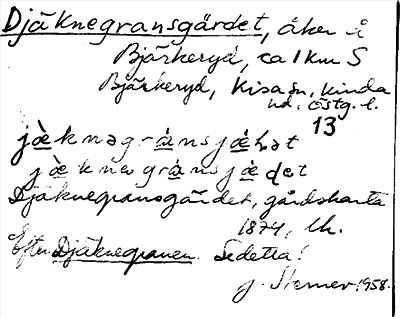 Djäknegransgärdet, åker i
Bjärkeryd, ca 1 km S
Bjärkeryd, Kisa sn, Kinda
hd, Östg. l.
13
jæ̀knəgrànsjæ̀ḍət
jæ̀knəgrànsjæ̀ḍet
Djäknegransgärdet, gårdskarta
1874, lh.
Efter Djäknegranen. Se detta!
J. Sterner 1958.